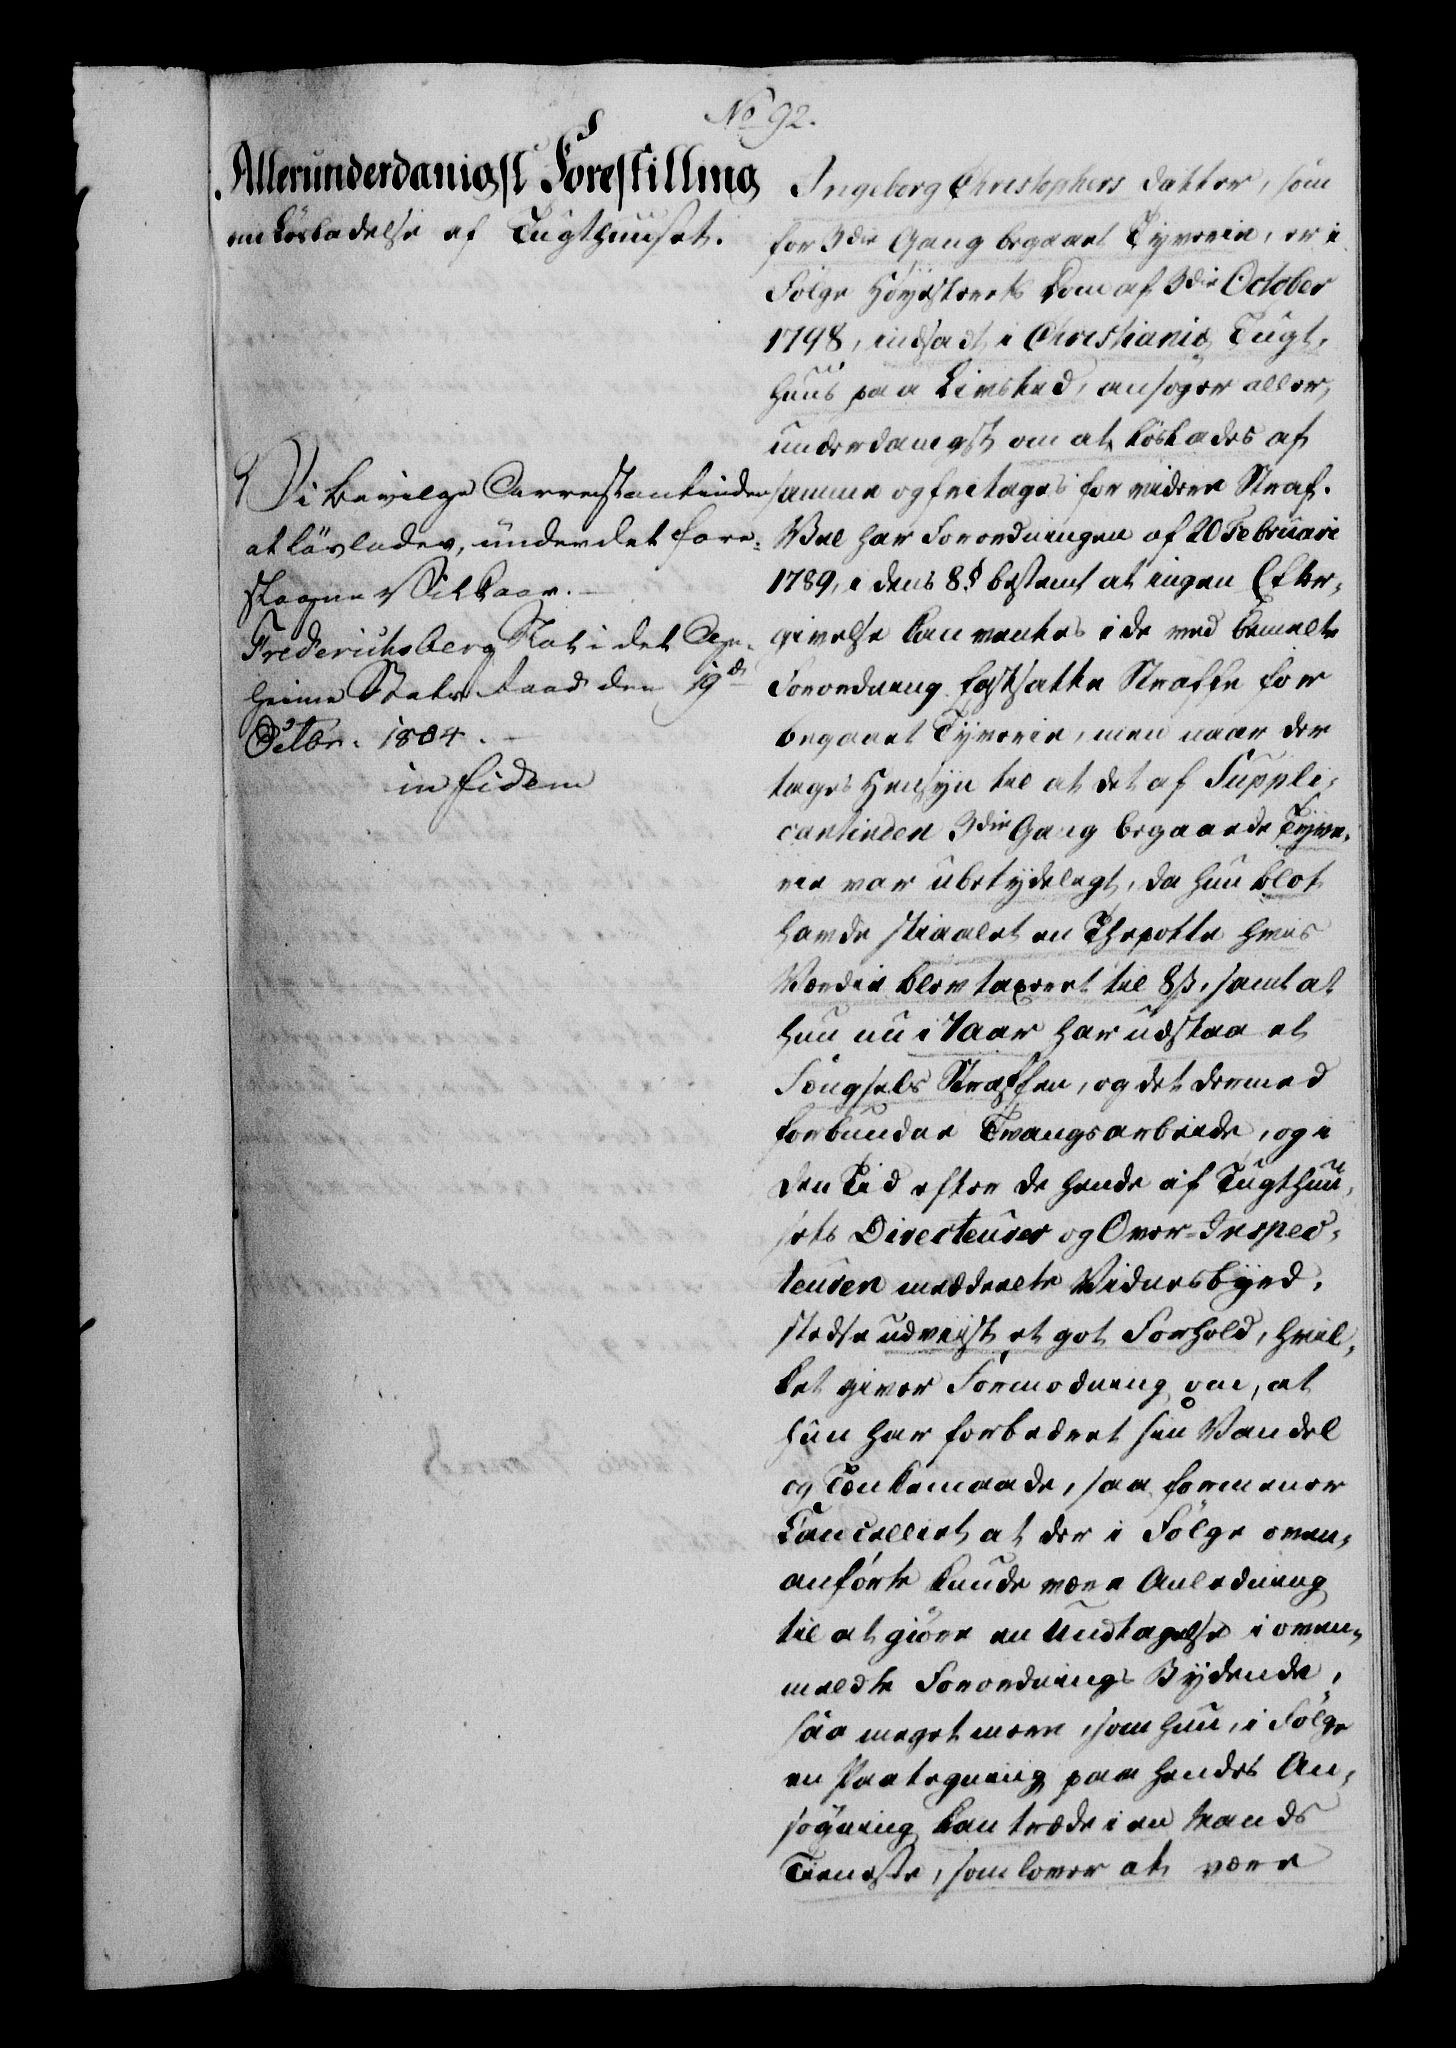 No 92.
Allerunderdanigst Forestilling
om Løsladelse af Tugthuuset.
Vi bevilge Arrestantinden
at løslades, under det fore-
slagne Vilkaar. —
Frederichsberg Slot i det Ge-
heime Stats-Raad den 19de
Octbr. 1804. —
in fidem
Ingeborg Christophers Datter, som
for 3die Gang begaaet Tyverie, er i
Følge Høyesterets Dom af 3die October
1798, indsadt i Christiania Tugt-
huus paa Livstid, ansøger aller-
underdanigst om at løslades af
samme og fritages for videre Straf.
Vel har Forordningen af 20 Februari
1789, i dens 8§ bestemt at ingen Efter-
givelse kan ventes i de ved bemelte
Forordning fastsatte Straffe for
begaaet Tyverie, men naar der
tages Hensyn til at det af Suppli-
cantinden 3die Gang begaaede Tyve-
rie var ubetydeligt, da hun blot
havde stiaalet en Thepotte hvis
Værdie blev taxeret til 8ß, samt at
hun nu i 7 Aar har udstaaet
Fængsels Straffen, og det dermed
forbundne Tvangsarbeide, og i
den Tid efter de hende af Tugthuu-
sets Directeurer og Over-Inspec-
teuren meddeelte Vidnesbyrd,
stedse udviist et got Forhold, hvil-
ket giver Formodning om, at
hun har forbedret sin Vandel
og Tænkemaade, saa formener
Cancelliet at der i Følge oven-
anførte kunde være Anledning
til at giøre en Undtagelse i oven-
meldte Forordnings Bydende,
saa meget mere, som hun, i Følge
en Paategning paa hendes An-
søgning kan træde i en Mands
Tieneste, som lover at være